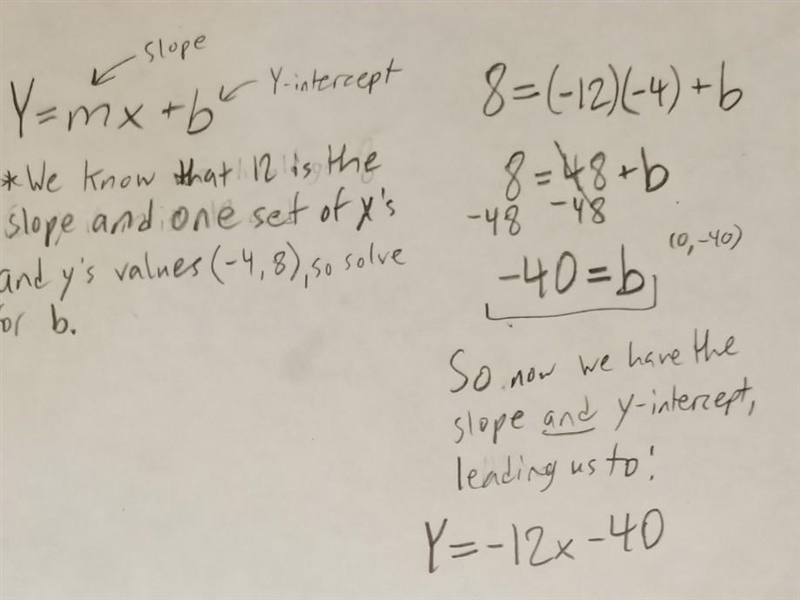 slope
Y=mx+b
Y-intercept
*We know that 12 is the
slope and one set of x's
and y's values (-4,8), so solve
or b.
8=(-12)(-4)+b
8=48+b
-48 -48
-40=b
(0,-40)
So now we have the
slope and y-intercept,
leading us to:
Y=-12x-40